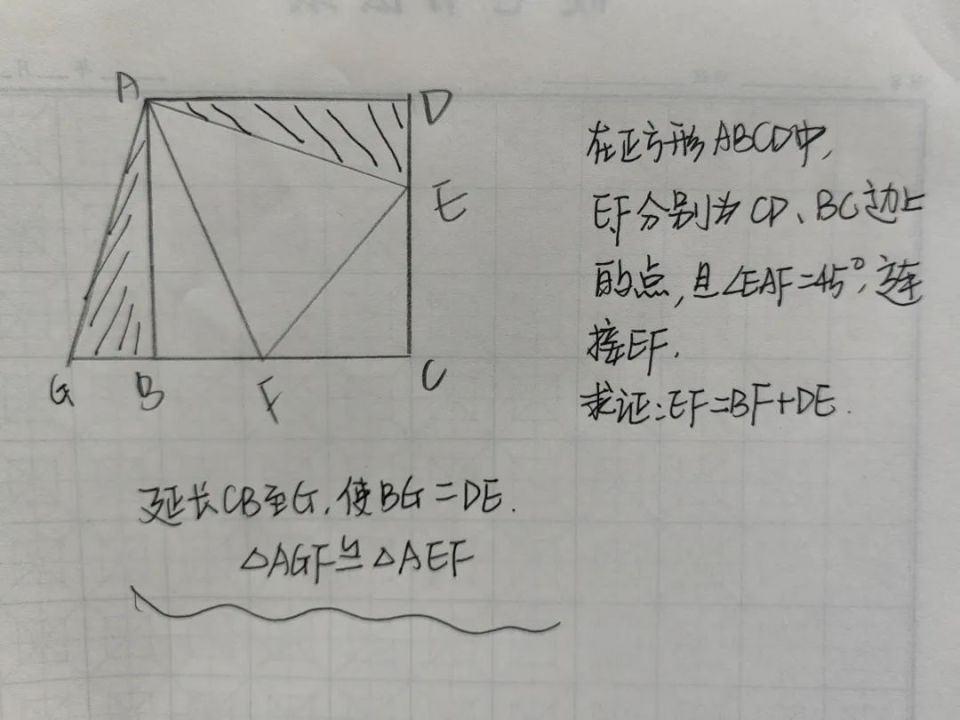 A
D
E
G
B
F
C
在正方形ABCD中,
E,F分别为CD、BC边上
的点,且∠EAF=45°,连
接EF.
求证:EF=BF+DE.
延长CB至G,使BG=DE.
△AGF≌△AEF